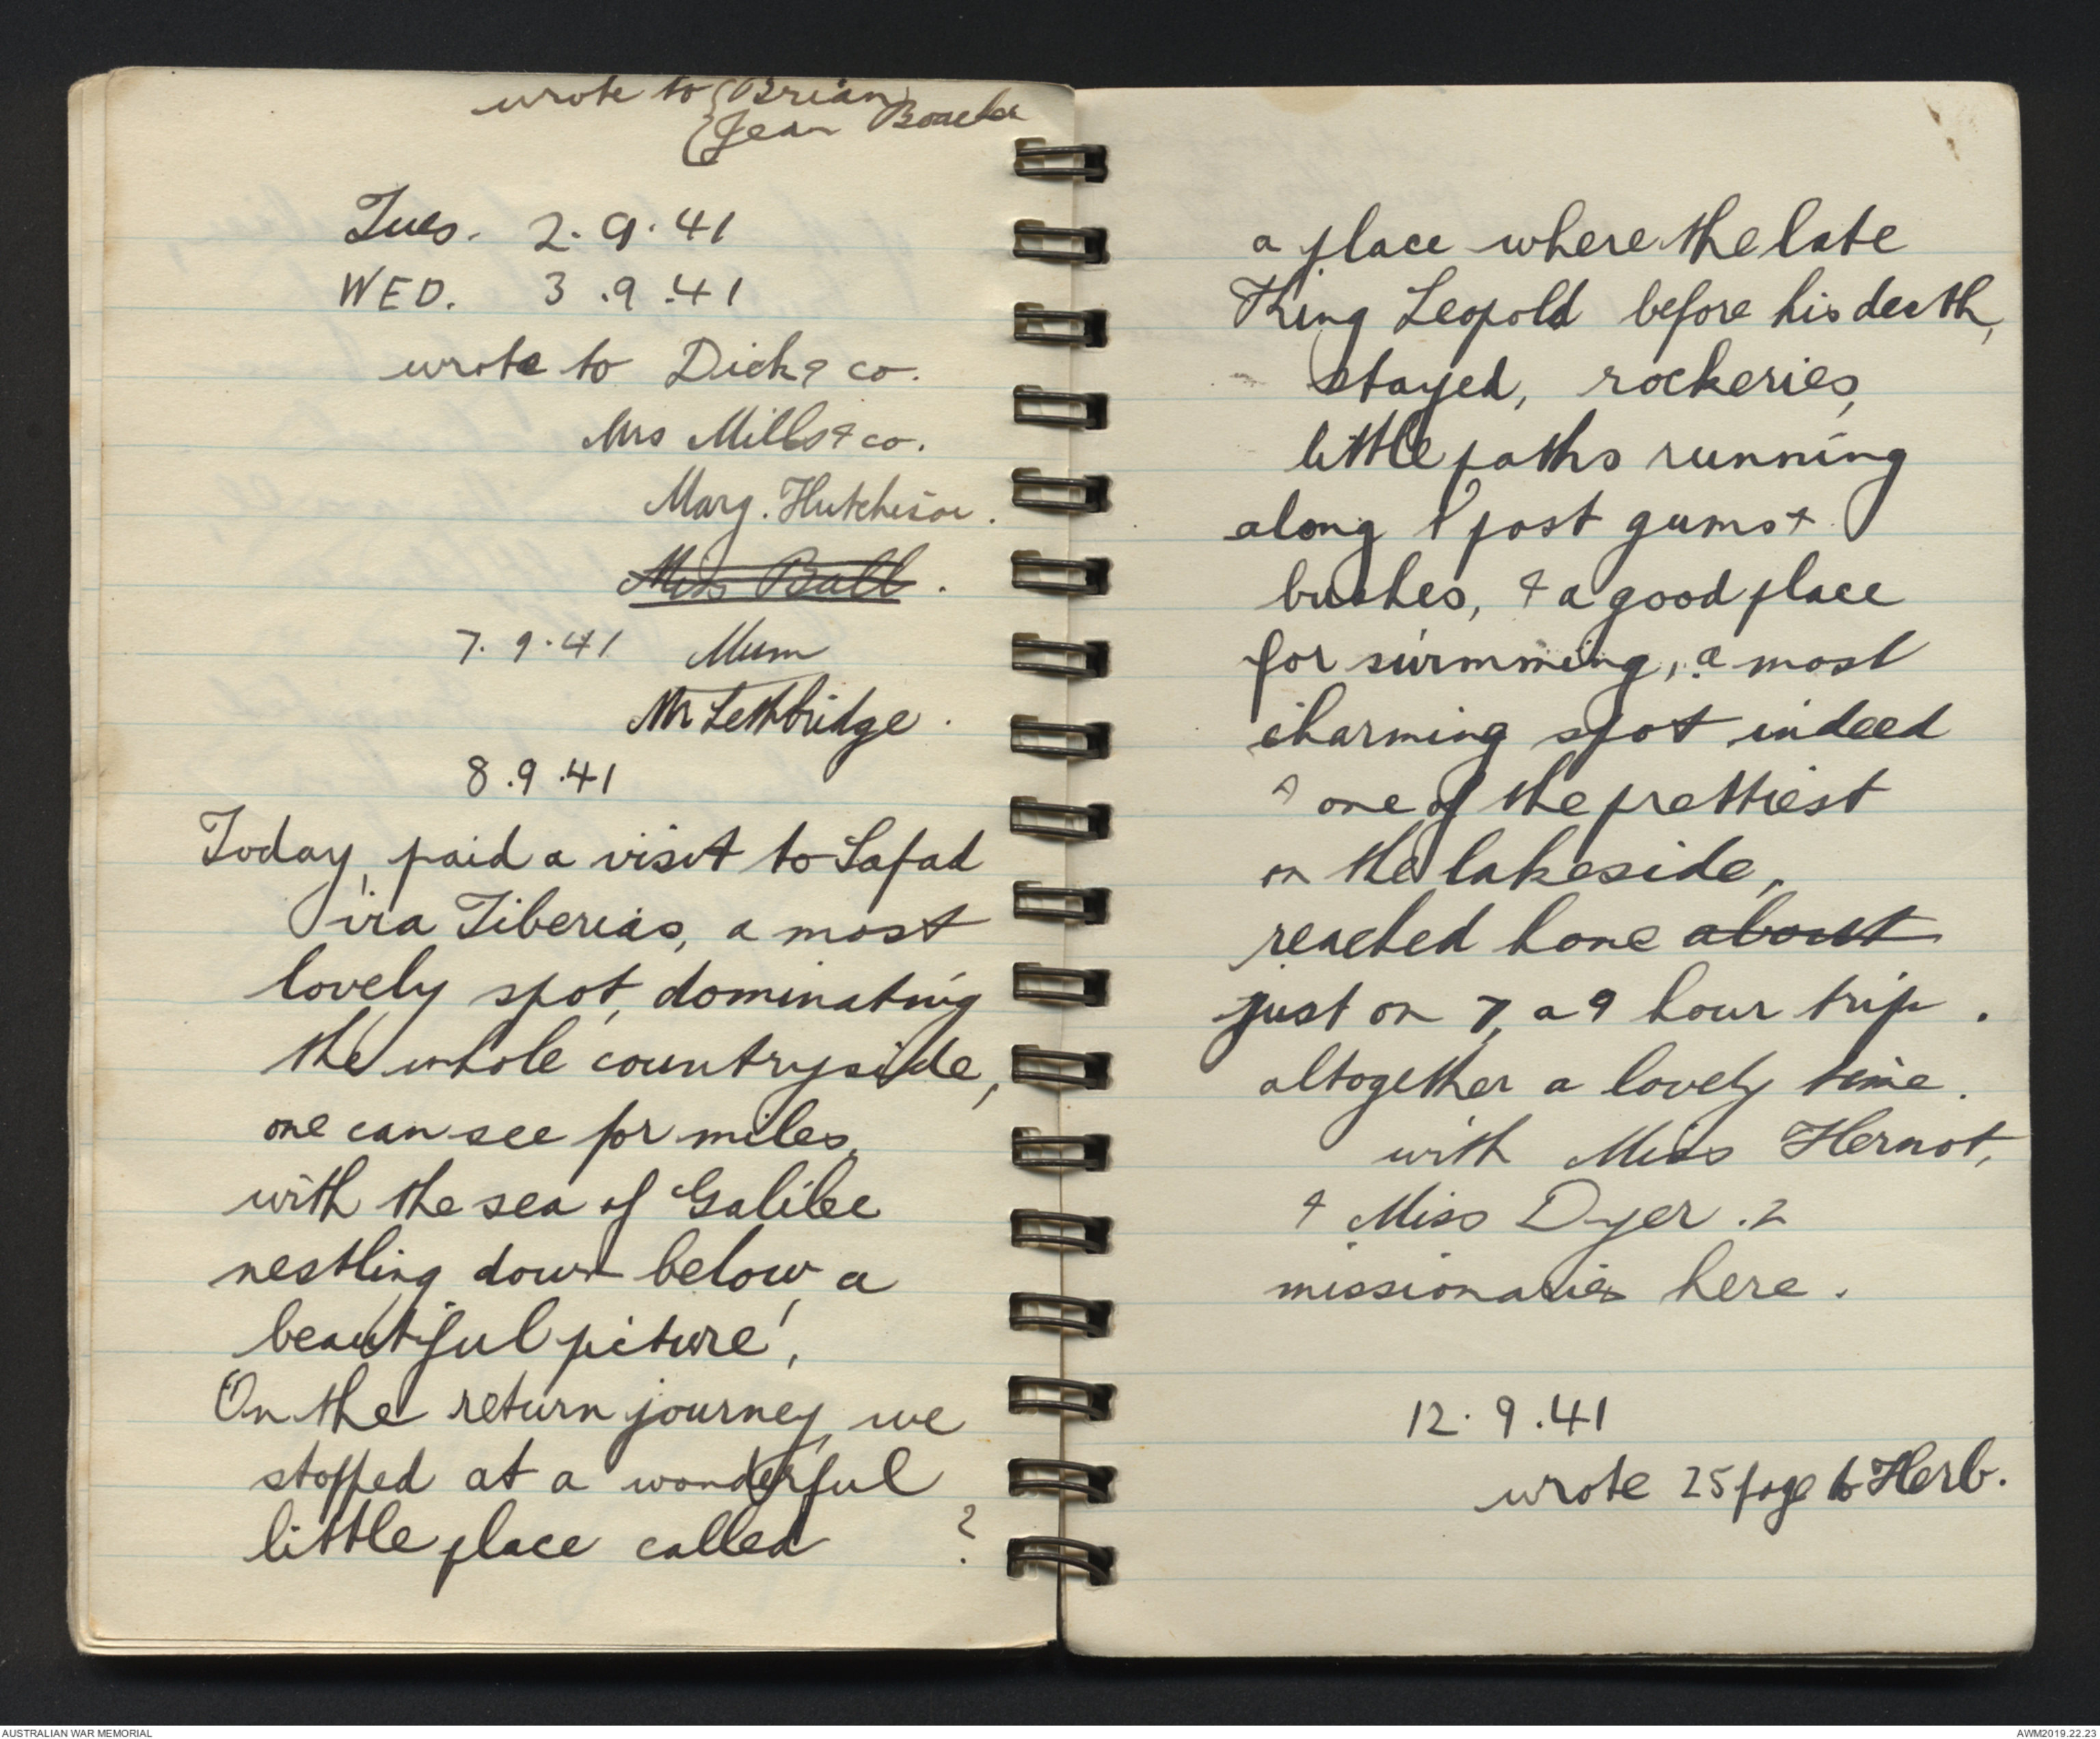 wrote to {Brian
{Jean
Tues. 2.9.41
WED. 3.9.41
wrote to Dick & co.
Mrs Mills & co.
Marg. Hutchison.
Miss Ball.
7.9.41 Mum
Mr Lethbridge.
8.9.41
Today, paid a visit to Safad
via Tiberias, a most
lovely spot, dominating
the whole countryside,
one can see for miles,
with the sea of Galilee
nestling down below, a
beautiful picture!,
On the return journey, we
stopped at a wonderful
little place called ?
a place where the late
King Leopold before his death,
stayed, rockeries,
little paths running
along & past gums &
bushes, & a good place
for swimming, a most
charming spot indeed
& one of the prettiest
on the lakeside,
reached home about
just on 7, a 9 hour trip.
altogether a lovely time.
with Miss Hernot,
& Miss Dyer. 2
missionaries here.
12.9.41
wrote 25 page to Herb.
AUSTRALIAN WAR MEMORIAL
AWM2019.22.23